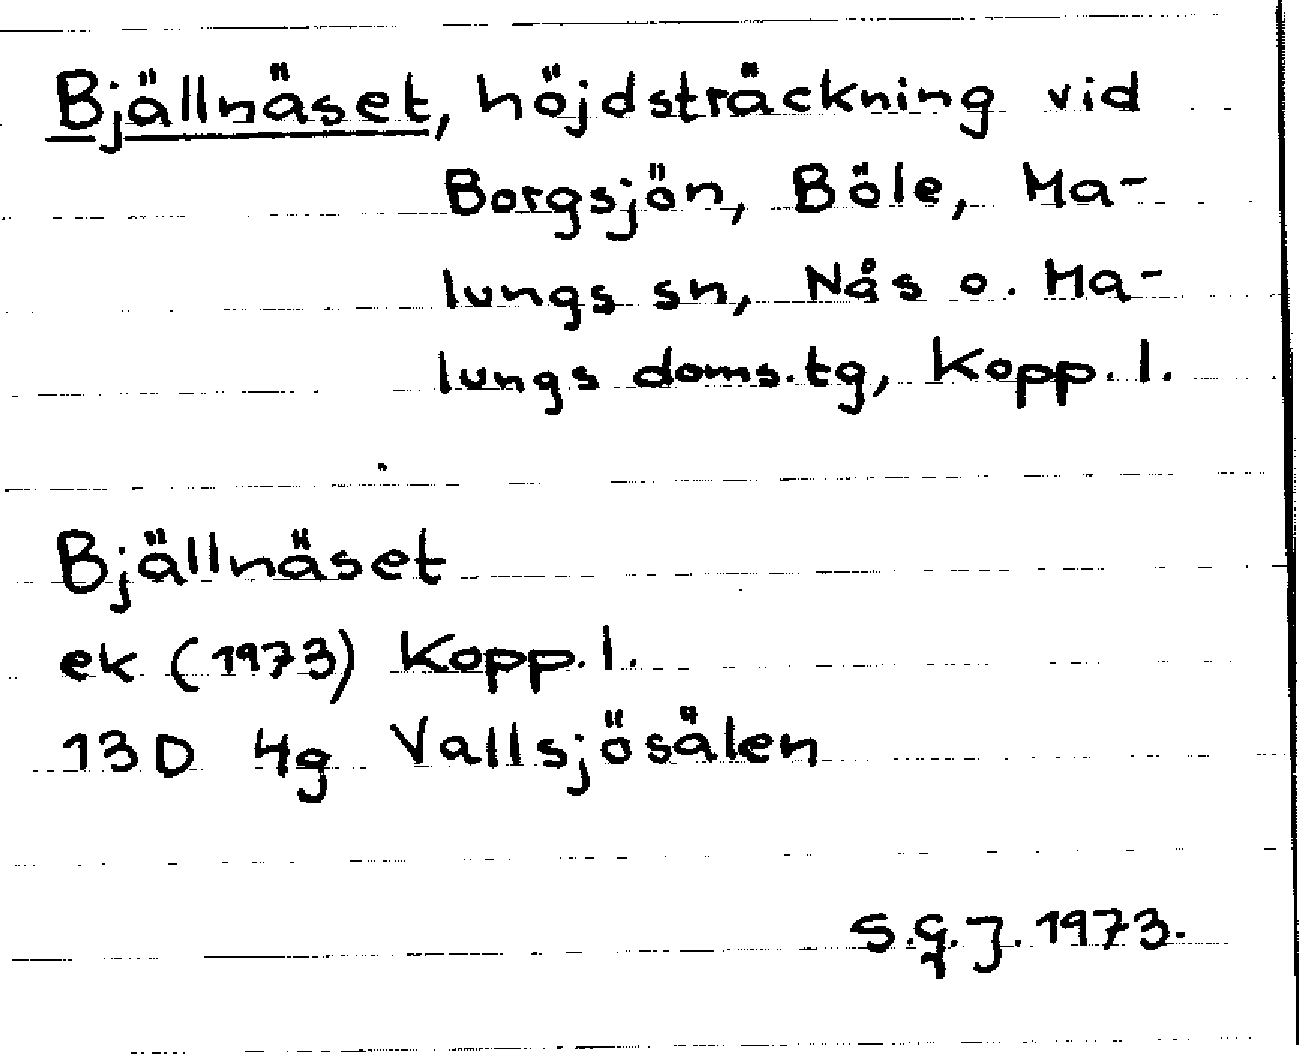 Bjällnäset, höjdsträckning vid
Borgsjön, Böle, Ma-
lungs sn, Nås o. Ma-
lungs doms.tg, Kopp.l.
Bjällnäset
ek (1973) Kopp.l.
13D 4g Vallsjösälen
S.G.J. 1973.